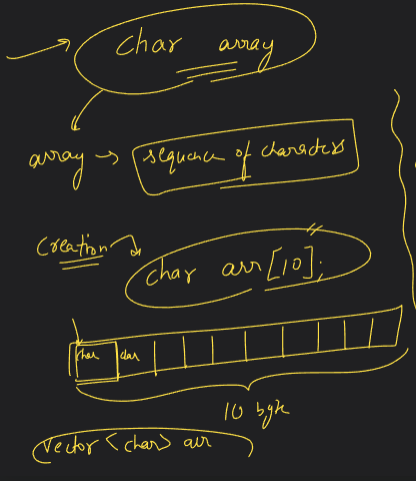 char array
array → sequence of characters
Creation
char arr[10];
char char
10 byte
vector <char> arr